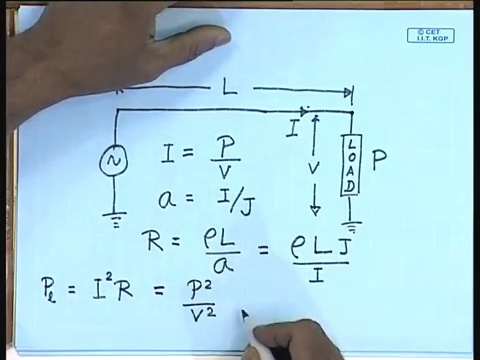 © CET
I.I.T. KGP
L
I
V
LOAD
P
~
I = P/V
a = I/J
R = ρL/a = ρLJ/I
Pₗ = I²R = P²/V²